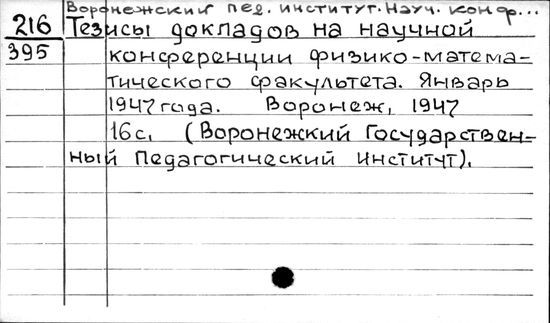 Воронежский пед. институт. Науч. конф...
216 Тезисы докладов на научной
395 конференции физико-матема-
тического факультета. Январь
1947 года. Воронеж, 1947
16с. (Воронежкий Государствен-
ный Педагогический институт).